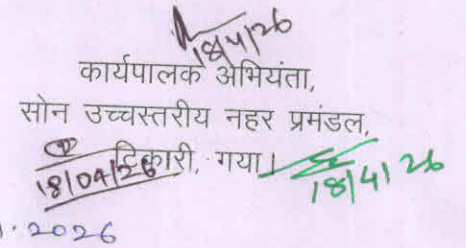 18/4/26
कार्यपालक अभियंता,
सोन उच्चस्तरीय नहर प्रमंडल,
टिकारी, गया।
18/04/26
18/4/26
.2026